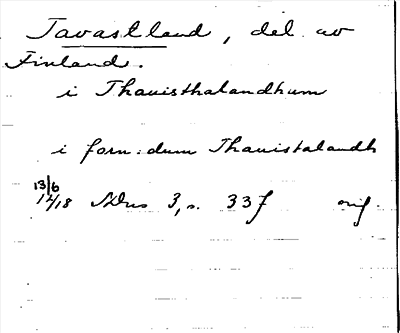 Tavastland, del av
Finland.
i Thauisthalandhum
i forn:dum Thauistalandh
13/6
1418 SDns 3, s. 337 orig.